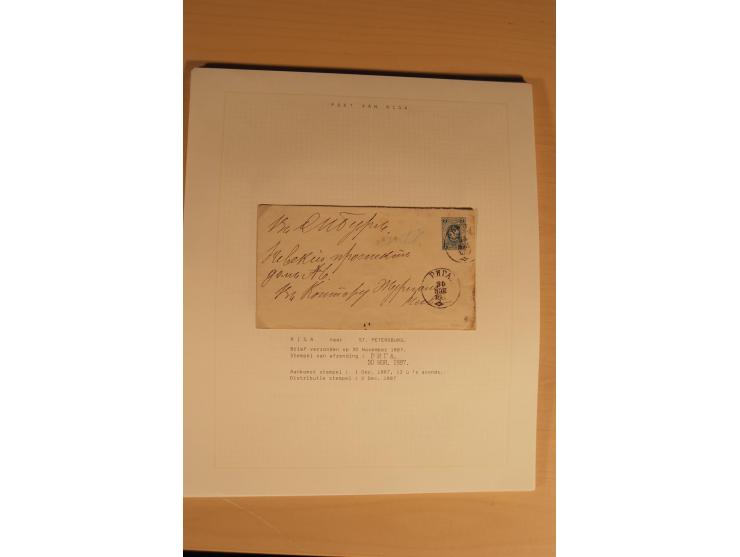 POST VAN RIGA
Въ
Невскій проспектъ
домъ №6.
Въ Контору Журнала
РИГА.
30
НОЯ
R I G A naar ST. PETERSBURG.
Brief verzonden op 30 November 1887.
Stempel van afzending : Р И Г А.
30 НОЯ. 1887.
Aankomst stempel : 1 Dec. 1887, 12 u 's avonds.
Distributie stempel : 2 Dec. 1887